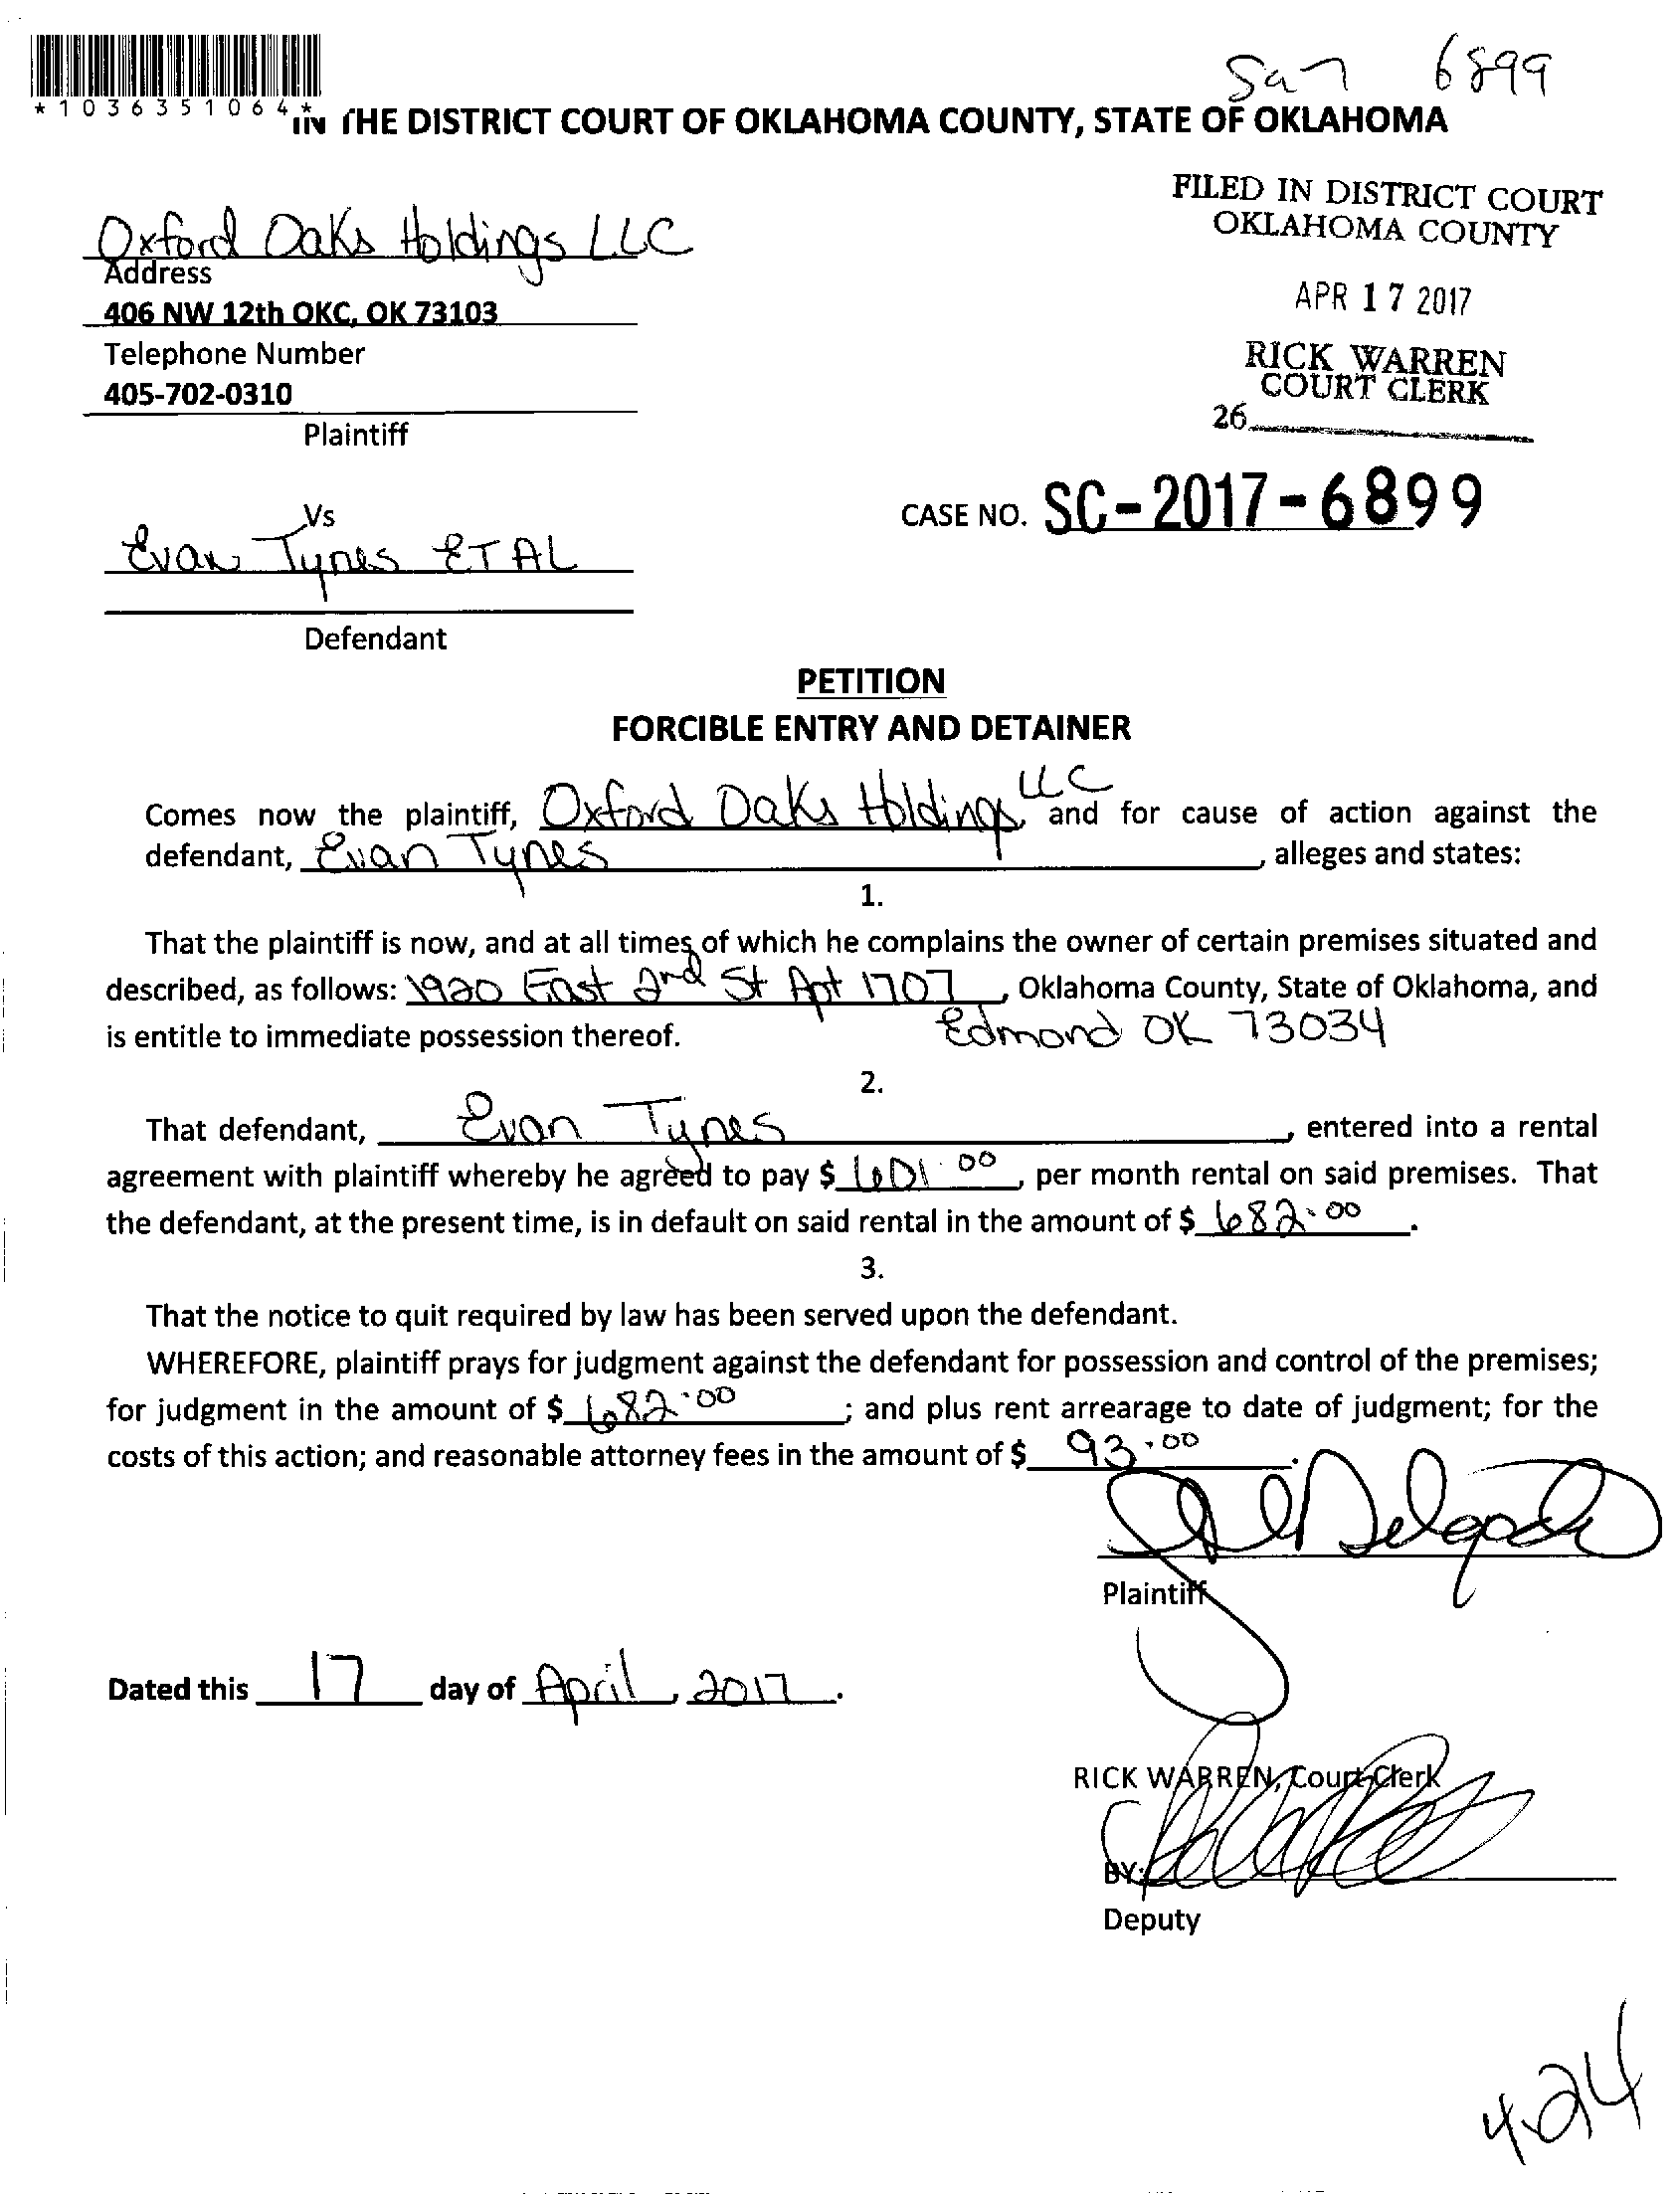 San 6899
*1036351064*
IN THE DISTRICT COURT OF OKLAHOMA COUNTY, STATE OF OKLAHOMA
FILED IN DISTRICT COURT
OKLAHOMA COUNTY
APR 17 2017
RICK WARREN
COURT CLERK
26
Oxford Oaks Holdings LLC
Address
406 NW 12th OKC, OK 73103
Telephone Number
405-702-0310
Plaintiff
Vs
CASE NO. SC-2017-6899
Evan Tynes ETAL
Defendant
PETITION
FORCIBLE ENTRY AND DETAINER
Comes now the plaintiff, Oxford Oaks Holdings, LLC and for cause of action against the
defendant, Evan Tynes, alleges and states:
1.
That the plaintiff is now, and at all times of which he complains the owner of certain premises situated and
described, as follows: 1920 East 2nd St Apt 1707, Oklahoma County, State of Oklahoma, and
is entitle to immediate possession thereof. Edmond OK 73034
2.
That defendant, Evan Tynes, entered into a rental
agreement with plaintiff whereby he agreed to pay $ 601.00, per month rental on said premises. That
the defendant, at the present time, is in default on said rental in the amount of $ 682.00.
3.
That the notice to quit required by law has been served upon the defendant.
WHEREFORE, plaintiff prays for judgment against the defendant for possession and control of the premises;
for judgment in the amount of $ 682.00; and plus rent arrearage to date of judgment; for the
costs of this action; and reasonable attorney fees in the amount of $ 93.00.
Plaintiff
Dated this 17 day of April, 2017.
RICK WARREN, Court Clerk
BY:
Deputy
4-24